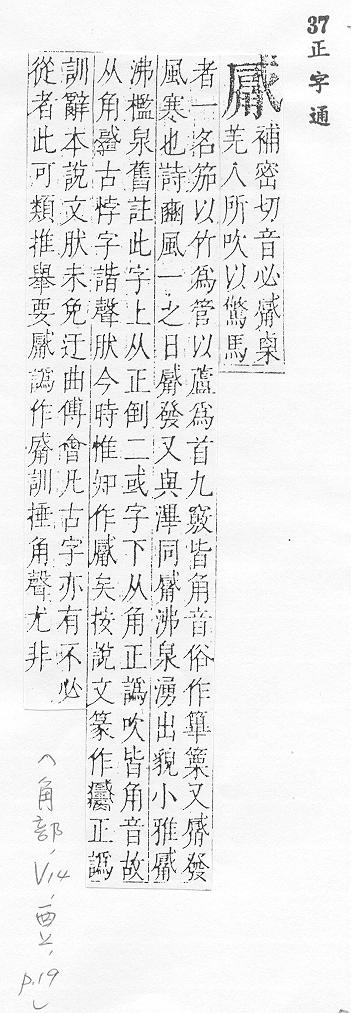 37正字通
觱
補密切音必觱栗
羌人所吹以驚馬
者一名笳以竹爲管以蘆爲首九竅皆角音俗作篳篥又觱發
風寒也詩豳風一之日觱發又與滭同觱沸泉湧出貌小雅觱
沸檻泉舊註此字上从正倒二或字下从角正譌吹皆角音故
从角古悖字諧聲肰今時惟知作觱矣按說文篆作𧥑正譌
訓辭本說文肰未免迂曲傅會凡古字亦有不必
從者此可類推舉要觱譌作觱訓捶角聲尤非
(角部, V14, 酉上, p.19)